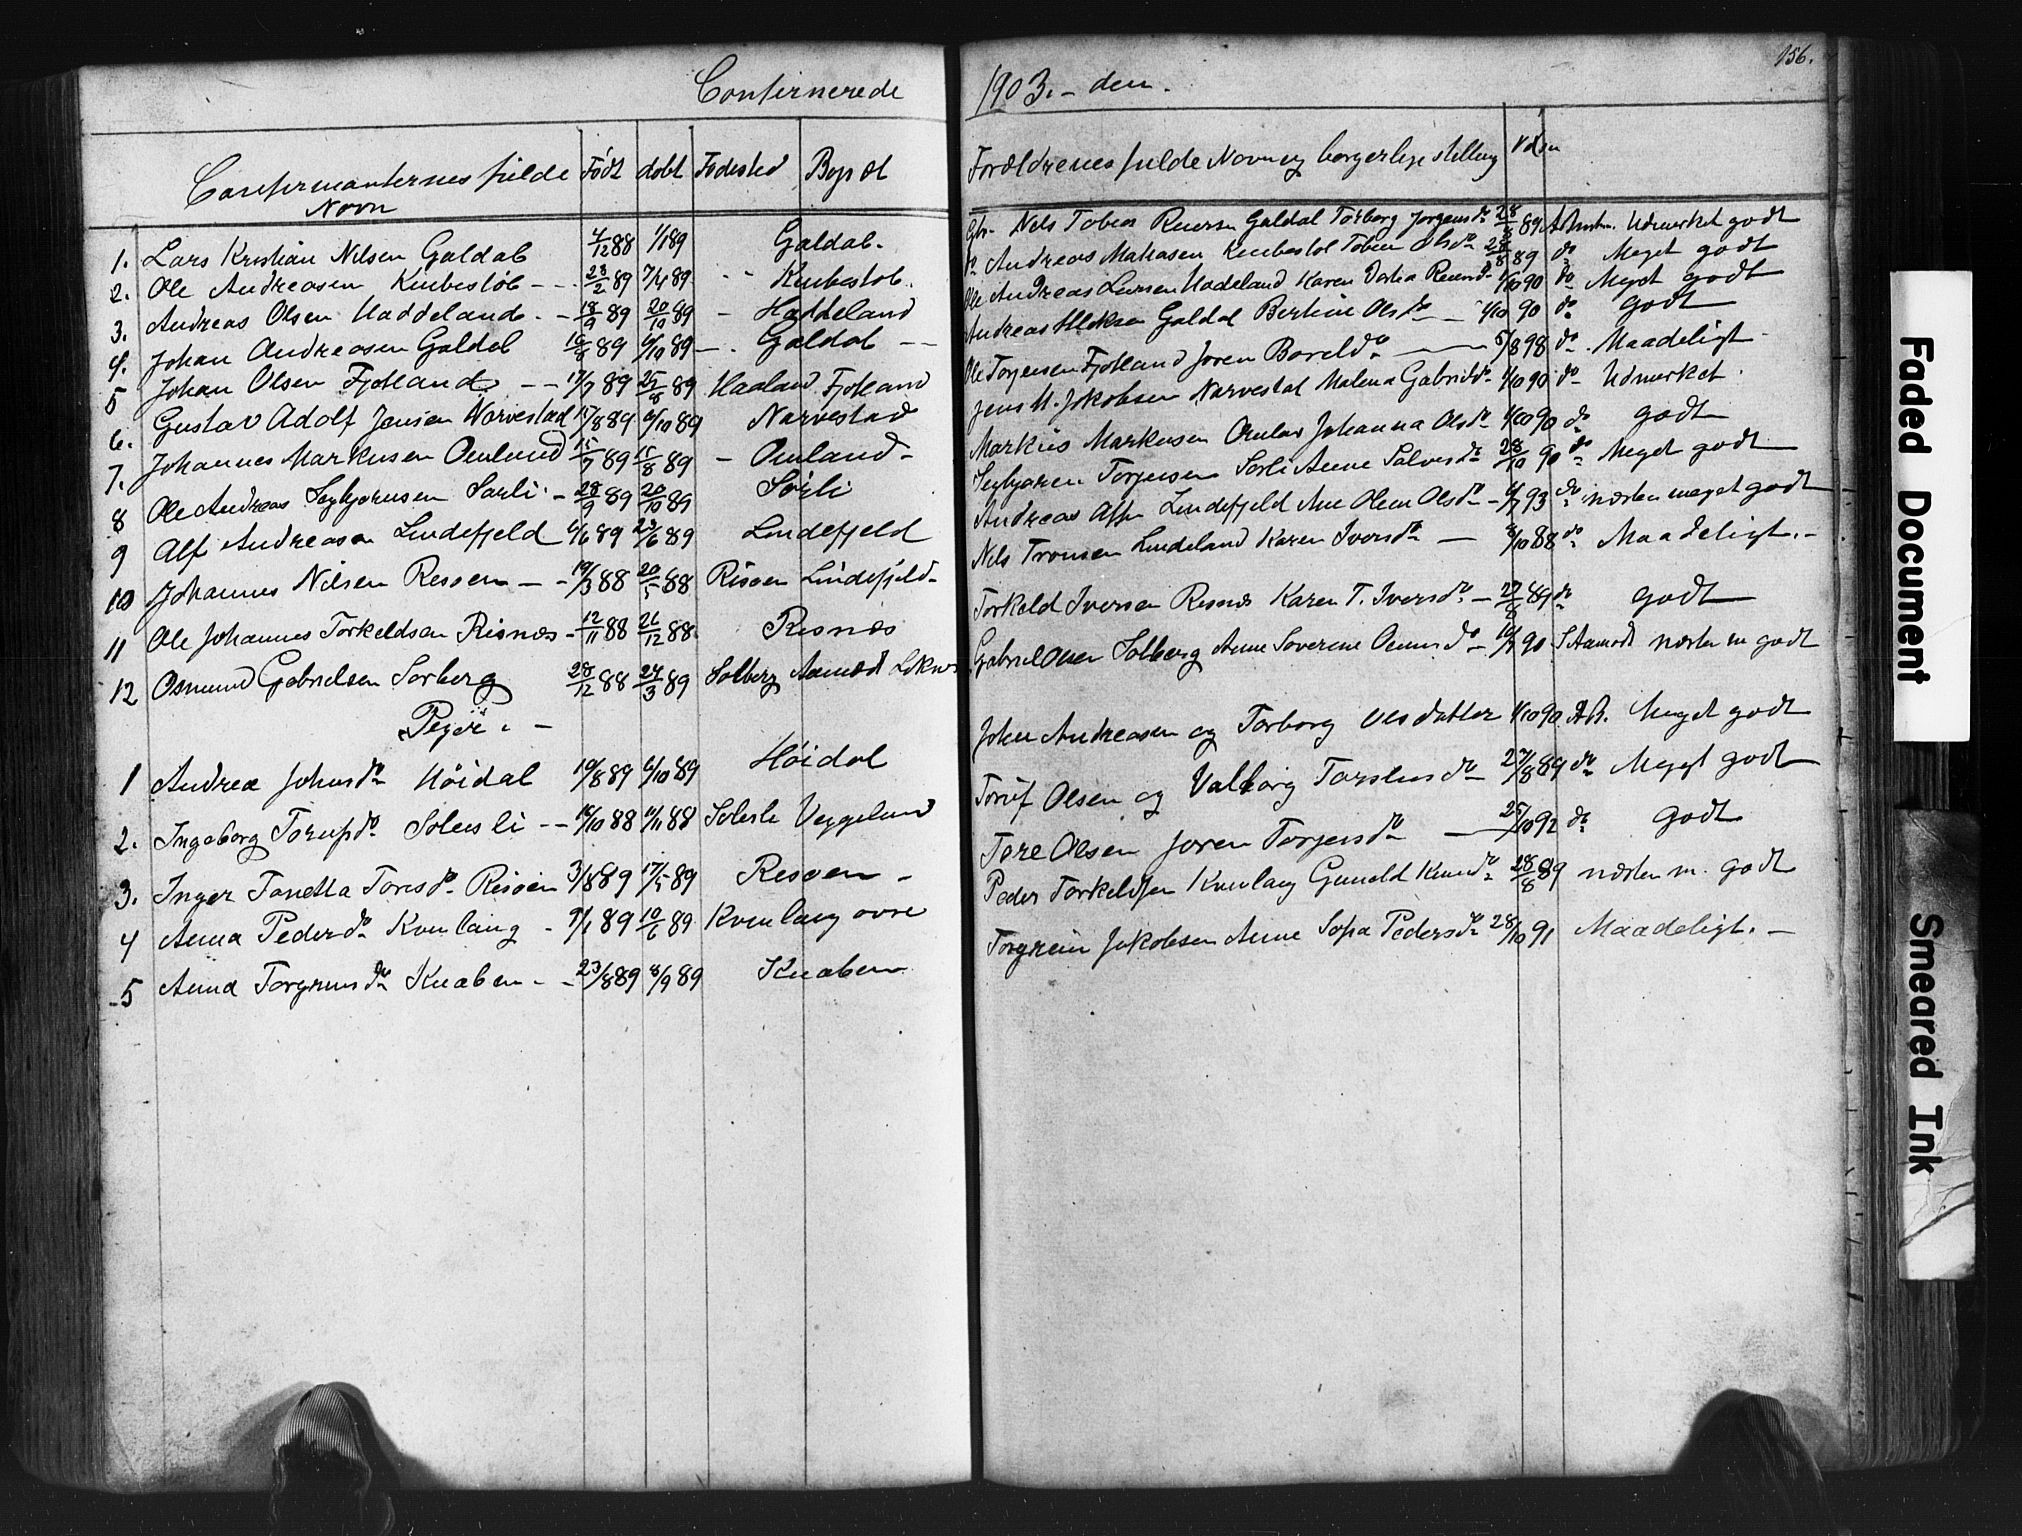 156.
Confirnerede 1903. - den.
Confirmanternes fulde Navn Født døbt Fødested Bopæl Forældrenes fulde Navn og borgerlige stilling Vdsn
1. Lars Kristian Nilsen Galdal 4/12 88 1/1 89 Galdal. Nels Tobias Galdal Torborg Jorgensdr 28/8 89 Udmerket godt
2. Ole Andreasen Knibestøl - - 23/2 89 7/4 89 " Knibestøl. Andreas Matiasen Knibestøl 28/8 89 do Meget godt
3. Andreas Olsen Haddeland - - 18/9 89 20/10 89 - Haddeland Ole Andreas Larsen Hadeland Karen 90 do Meget godt
4. Johan Andreasen Galdal 16/8 89 6/10 89 - Galdal - - Andreas Galdal Bertine Olsdr - 4/10 90 do godt
5 Johan Olsen Fjotland - - 17/7 89 25/8 89 Haaland Fjotland Ole Torgersen Fjotland Joren 5/8 98 do Maadeligt -
6. Gustav Adolf Jensen Narvestad 17/8 89 6/10 89 Narvestad Jens M. Jakobsen Narvestad Malena 4/10 90 do Udmerket.
7. Johannes Markusen Omland 15/7 89 15/8 89 - Omland - Markus Markusen Omland Johanna Olsdr 4/10 90 do godt
8 Ole Andreas Seybjornsen Sørli - 28/9 89 20/10 89 Sørli Seybjoren Torjusen Sørli Anne Salvesdr 28/10 90 do Meget godt
9 Alf Andreasen Lindefjeld 4/6 89 23/6 89 Lindefjeld Andreas Lindefjeld Ane Olene Olsdr - 93 do næsten meget godt
10 Johannes Nilsen Resøen - - 19/3 88 20/5 88 Risøen Lindefjeld - Nels Tronsen Lindeland Karen Iversdr - 8/10 88 do Maadeligt. -
11 Ole Johannes Torkeldsen Risnæs - 12/11 88 26/12 88 Risnæs Torkeld Iversen Risnæs Karen T. Iversdr - 27/8 89 do godt
12 Osmund Gabrielsen Sørberg 28/12 88 24/3 89 Solberg Aamodt Gabriel Olsen Solberg Anne Severine 90 S Aamodt næsten m godt
Pejer. -
1 Andrea Johnsdr Høidal 19/8 89 6/10 89 Høidal John Andreasen og Torborg Olsdatter 4/10 90 Meget godt
2. Ingeborg Solesli - - 16/10 88 11/11 88 Solesli Veggeland Olsen og Valborg 27/8 89 do Meget godt
3. Inger Tonetta Toresdr Risøen 3/4 89 17/5 89 Resøen - Tore Olsen Joren Torjusdr - 25/10 92 do godt
4 Anna Pedersdr Kvinlaug - 9/1 89 10/6 89 Kvinlaug øvre Peder Torkeldsen Kvinlaug Gunild 28/8 89 næsten m. godt
5 Anna Torgrimsdr Knaben - - 23/8 89 8/9 89 Knaben Torgrim Jakobsen Anne Sofia Pedersdr 28/10 91 Maadeligt. -
Faded Document
Smeared Ink